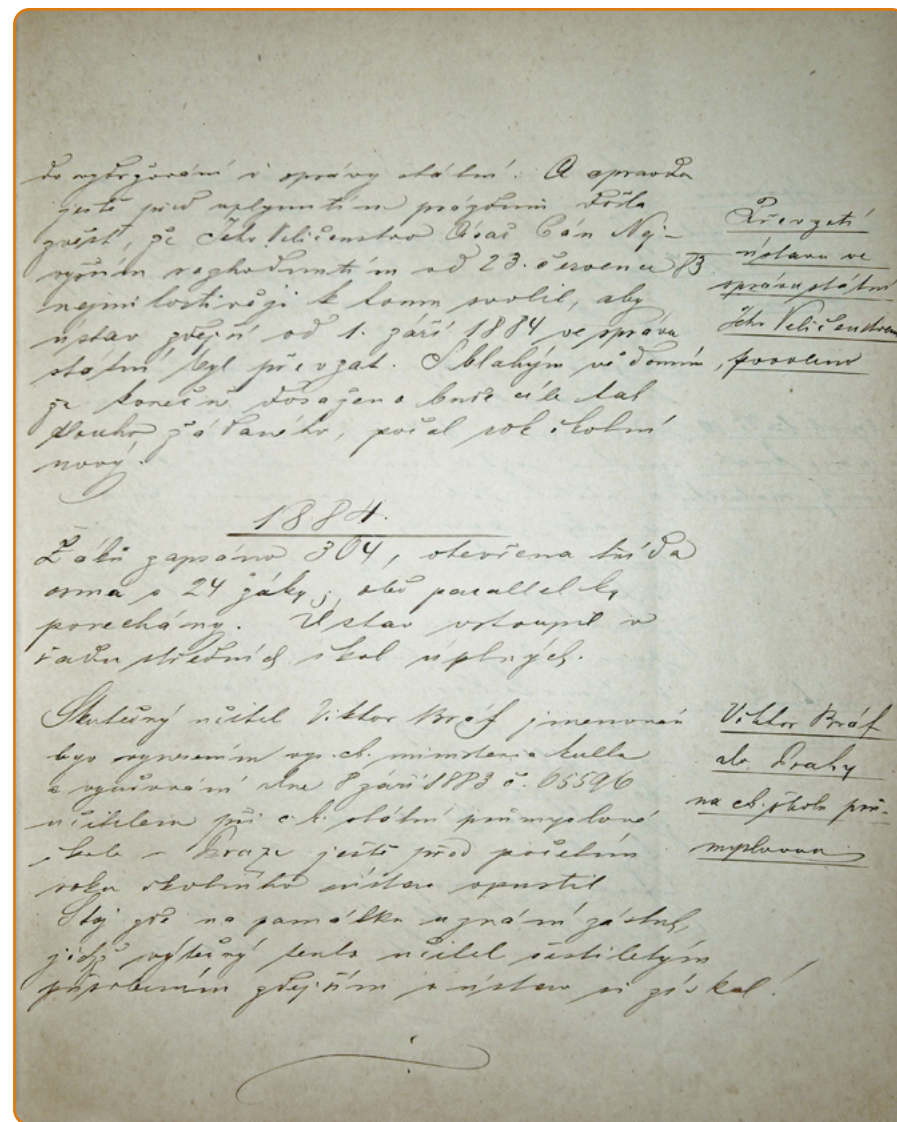 do vydržování i správy státní. A opravdu
ještě před uplynutím prázdnin došla
zvěst, že Jeho Veličenstvo Císař Pán Nej-
vyšším rozhodnutím od 23. července 83
nejmilostivěji k tomu svolil, aby
ústav zdejší od 1. září 1884 ve správu
státní byl převzat. S blahým vědomím,
že konečně dosaženo bude cíle tak
dlouho žádaného, počal rok školní
nový.
Převzetí
ústavu ve
správu státní
Jeho Veličenstvem
povoleno
1884.
Žáků zapsáno 304, otevřena třída
osmá s 24 žáky; obě parallelky
ponechány. Ústav vstoupil v
řadu středních škol úplných.
Skutečný učitel Viktor Bráf jmenován
byv vynesením vys. ck. ministeria kultu
a vyučování dne 8 září 1883 č. 65596
učitelem při c.k. státní průmyslové
škole v Praze ještě před početím
roku školního ústav opustil
Stůj zde na památku uznání zásluh,
jichž výtečný tento učitel šestiletým
působením zdejším o ústav si získal!
Viktor Bráf
do Prahy
na ck. školu prů-
myslovou